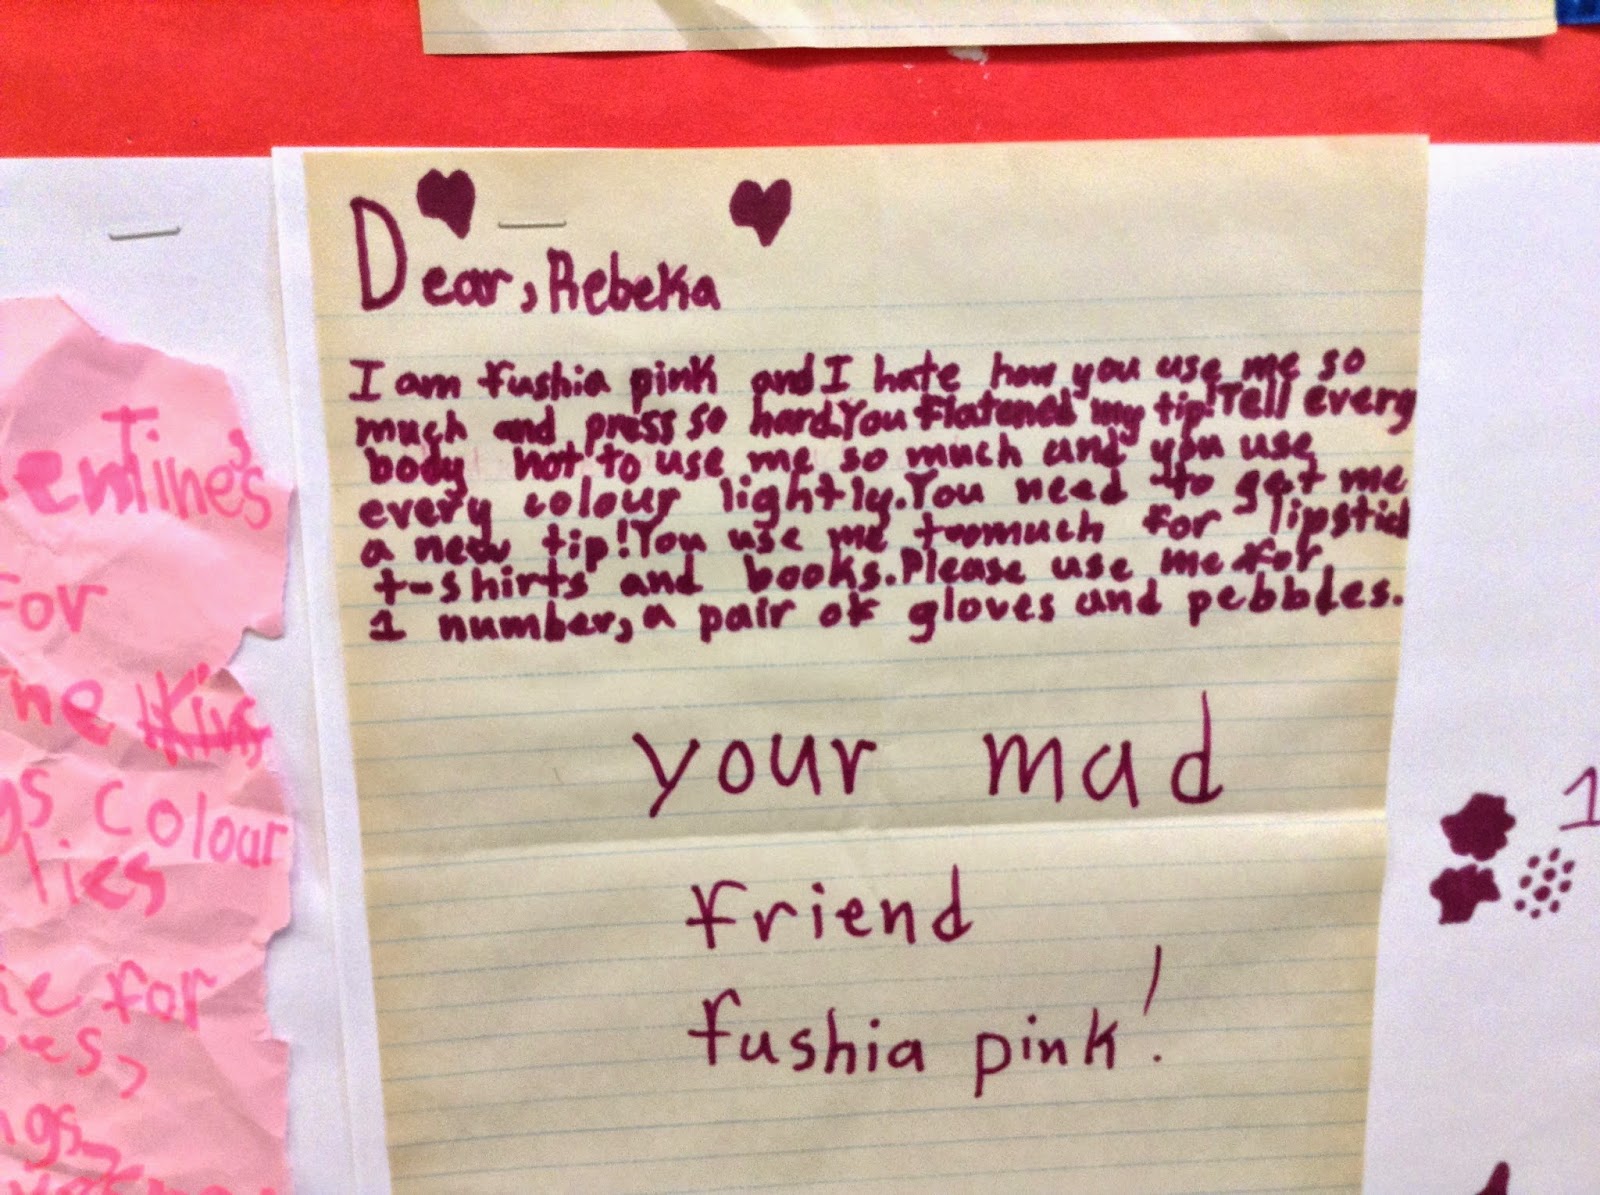 Dear, Rebeka
I am fushia pink and I hate how you use me so
much and press so hard.You flatened my tip!Tell every
body not to use me so much and you use
every colour lightly.You need to get me
a new tip!You use me toomuch for lipstick
t-shirts and books.Please use me for
1 number, a pair of gloves and pebbles.
your mad
friend
fushia pink!
entine's
for
colour
lies
for
1